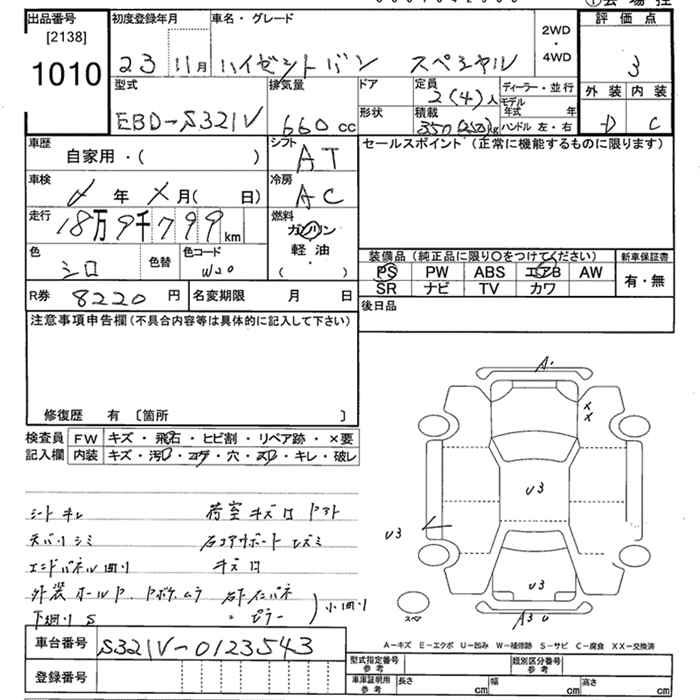 出品番号 初度登録年月 車名・グレード 評価点
[2138] 2WD
1010 23 11月 ハイゼットバン スペシャル ・ 3
4WD
外装 内装
型式 排気量 ドア 定員 2(4)人 ディーラー・並行 D C
モデル年式 年
EBD-S321V 660cc 形状 積載 350(250)kg ハンドル 左・右
車歴 シフト セールスポイント(正常に機能するものに限ります)
自家用・( ) AT
車検 冷房
年 月( 日) AC
走行 燃料
18万9千799km ガソリン
軽油
色 色替 色コード ・
シロ W20 ( )
装備品(純正品に限り○をつけてください) 新車保証書
PS PW ABS エアB AW 有・無
SR ナビ TV カワ
R券 8220円 名変期限 月 日 後日品
注意事項申告欄(不具合内容等は具体的に記入して下さい)
修復歴 有 〔箇所 〕
検査員 FW キズ・飛石・ヒビ割・リペア跡・×要
記入欄 内装 キズ・汚れ・コゲ・穴・スレ・キレ・破レ
シートキレ 荷室キズ凹
天バリシミ 右コアサポートユガミ
エンドパネル凹リ キズ凹
外装
下廻りS 小凹リ
A・
××
U3
U3
U3
A3U
スペア
A-キズ E-エクボ U-凹み W-補修跡 S-サビ C-腐食 XX-交換済
車台番号 S321V-0123543
登録番号
型式指定番号 参考 類別区分番号 参考
車庫証明用 参考 長さ cm 幅 cm 高さ cm